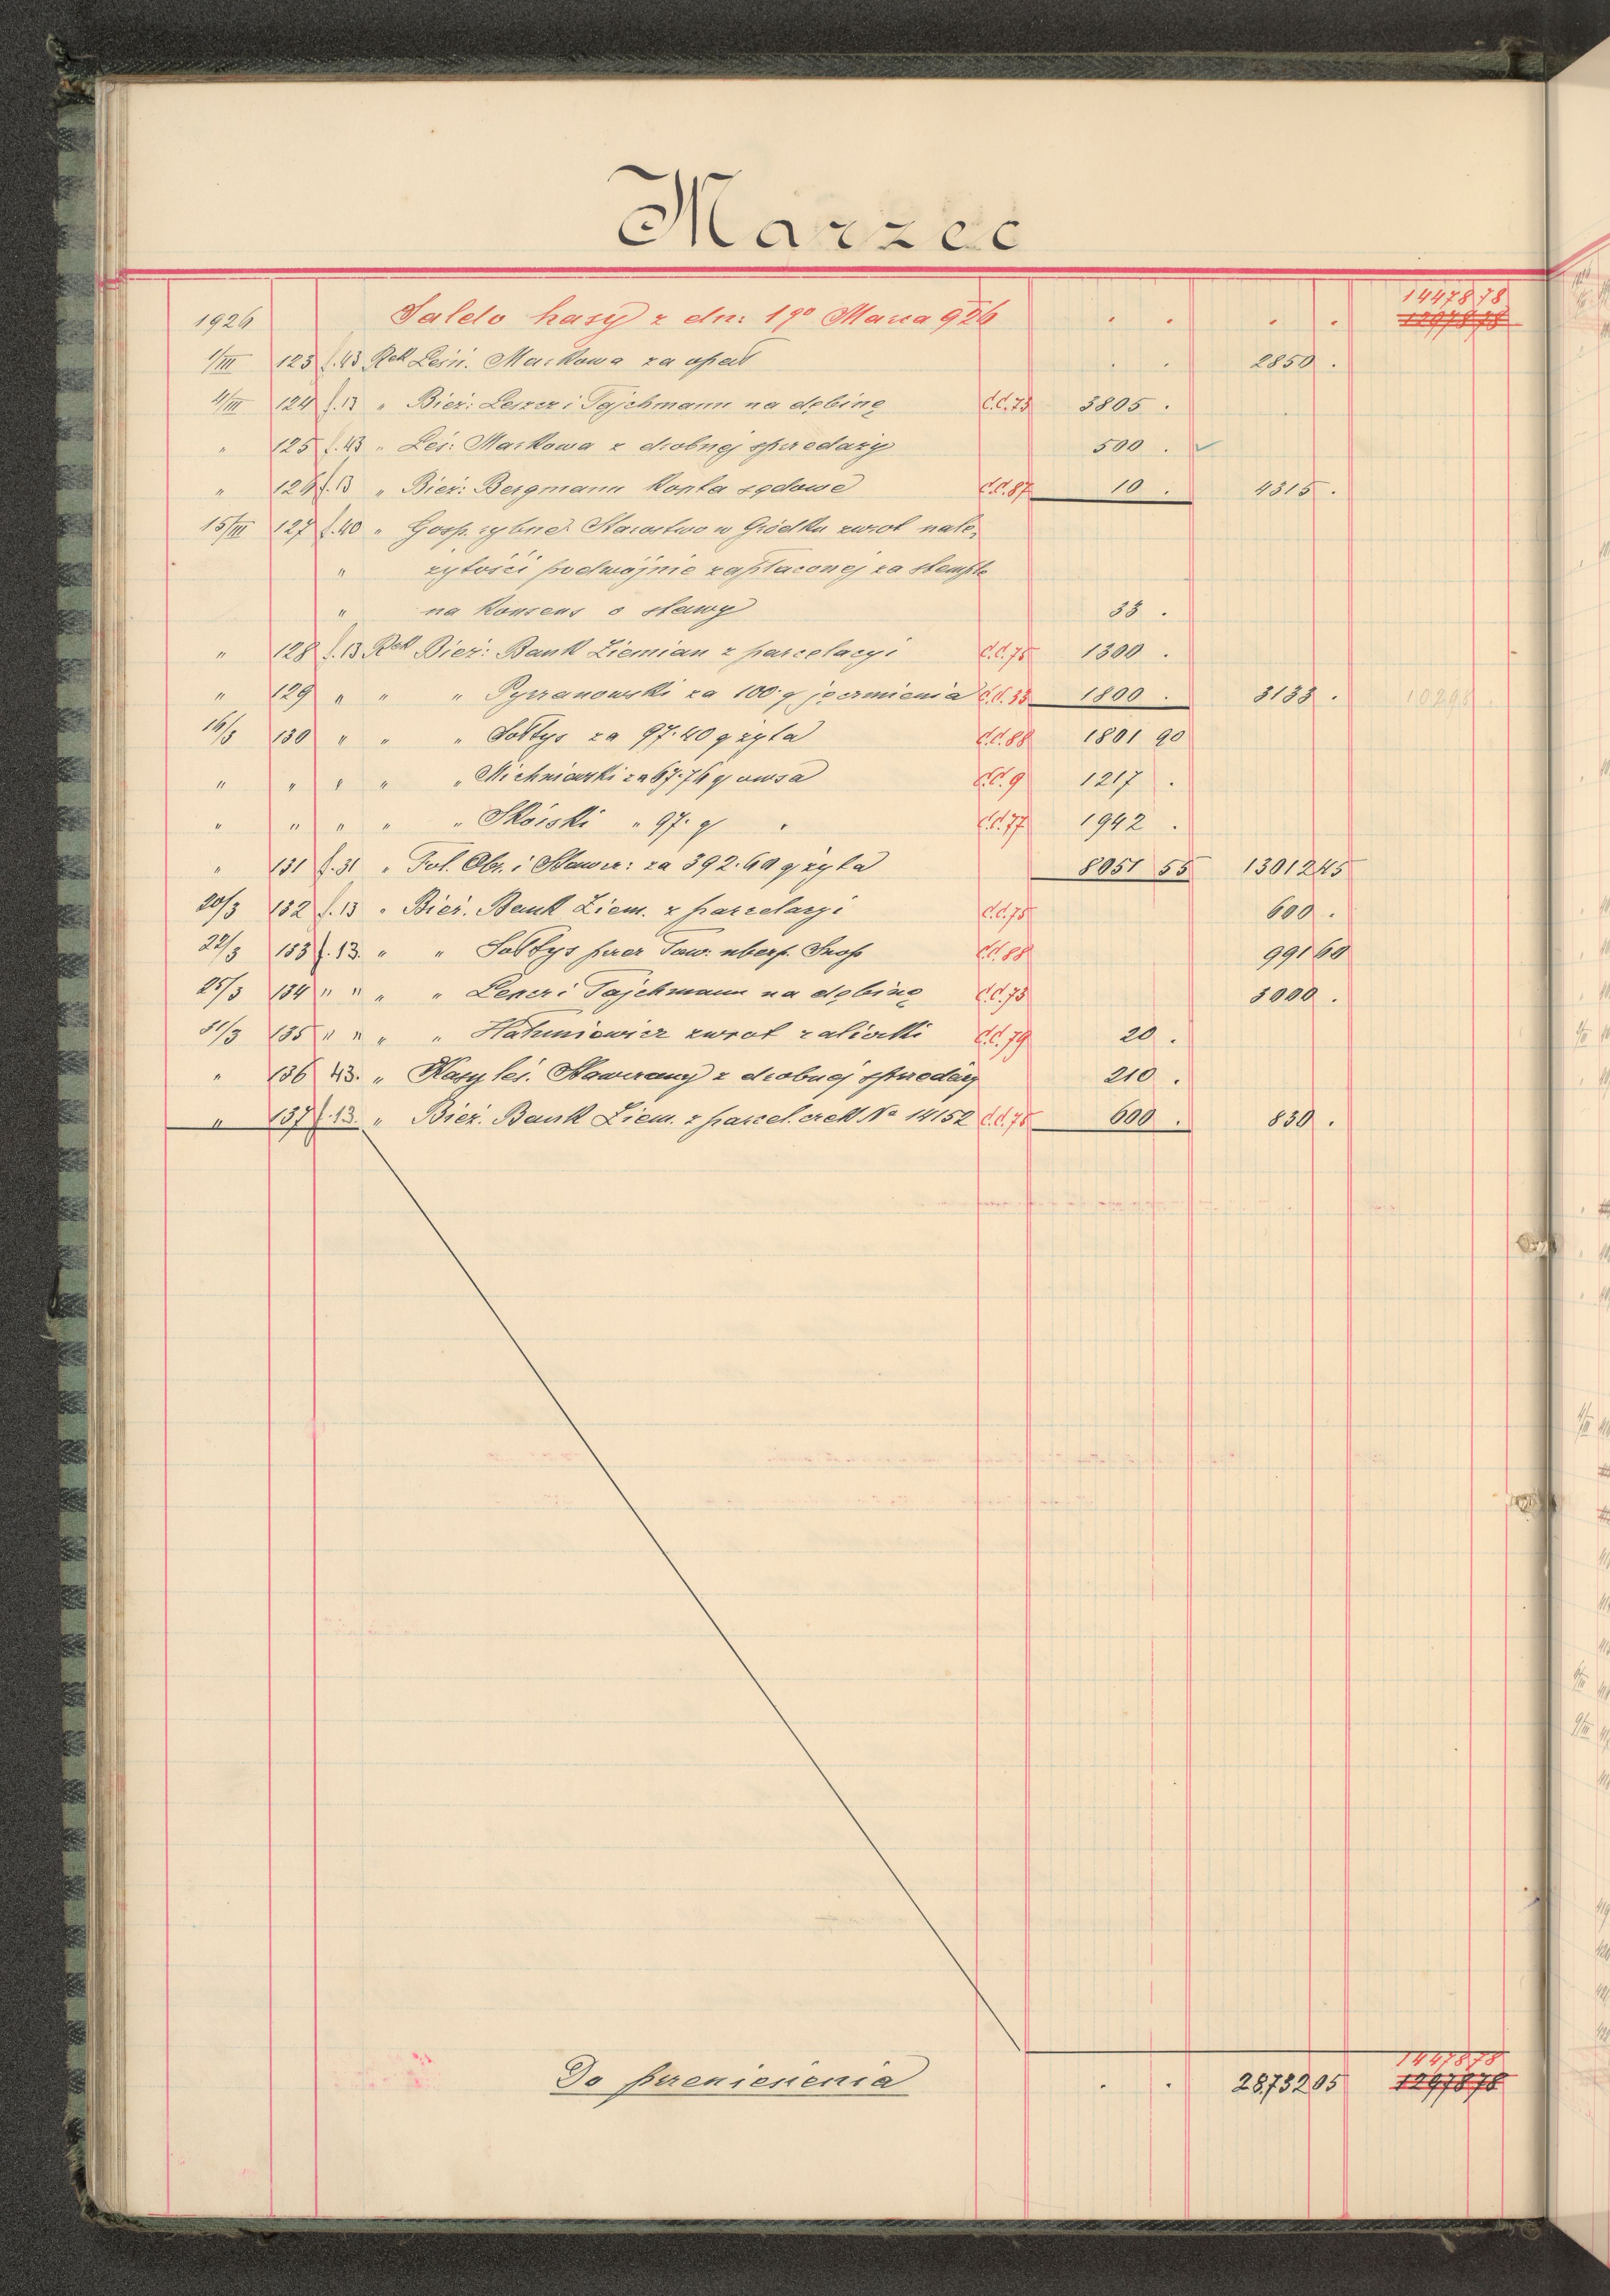 Marzec
1926 Saldo kasy z dn: 1go Marca 926 . . . . 14478 78 12978 78
1/III 123 f. 43 Rek Leśn. Markowa za opał . . 2850 .
4/III 124 f. 13 " Bież: Lerer i Tajchmann na dębinę C.C. 73 3805 .
" 125 f. 43 " Leś: Markowa z drobnej sprzedaży 500 .
" 126 f. 13 " Bież: Bergmann koszta sądowe C.C. 87 10 . 4315 .
15/III 127 f. 40 " Gosp. rybne. Starostwo w Gródku zwrot nale-
" żytości podwójnie zapłaconej za stemple
" na konsens o stawy 33 .
" 128 f. 13 Rek Bież: Bank Ziemian z parcelacyi C.C. 75 1300 .
" 129 " " " Pyrzanowski za 100. q jęczmienia C.C. 33 1800 . 3133 . 10298 .
16/3 130 " " " Sołtys za 97.40 q żyta C.C. 88 1801 90
" " " " " Michniewski za 67.76 q owsa C.C. 9 1217 .
" " " " " Skórski " 97. q " C.C. 77 1942 .
" 131 f. 31 " Fol. Obr. i Stawcz: za 392.60 q żyta 8051 55 13012 45
20/3 132 f. 13 " Bież. Bank Ziem. z parcelacyi C.C. 75 600 .
22/3 133 f. 13. " " Sołtys przez Tow: ubezp. Snop C.C. 88 991 60
25/3 134 " " " " Lerer i Tajchmann na dębinę C.C. 73 3000 .
31/3 135 " " " " Hahmiewicz zwrot zaliczki C.C. 79 20 .
" 136 43. " Kasy leś. Stawczany z drobnej sprzedaży 210 .
" 137 f. 13. " Bież. Bank Ziem. z parcel. czek No 14152 C.C. 75 600 . 830 .
Do przeniesienia . . 28732 05 14478 78 12978 78